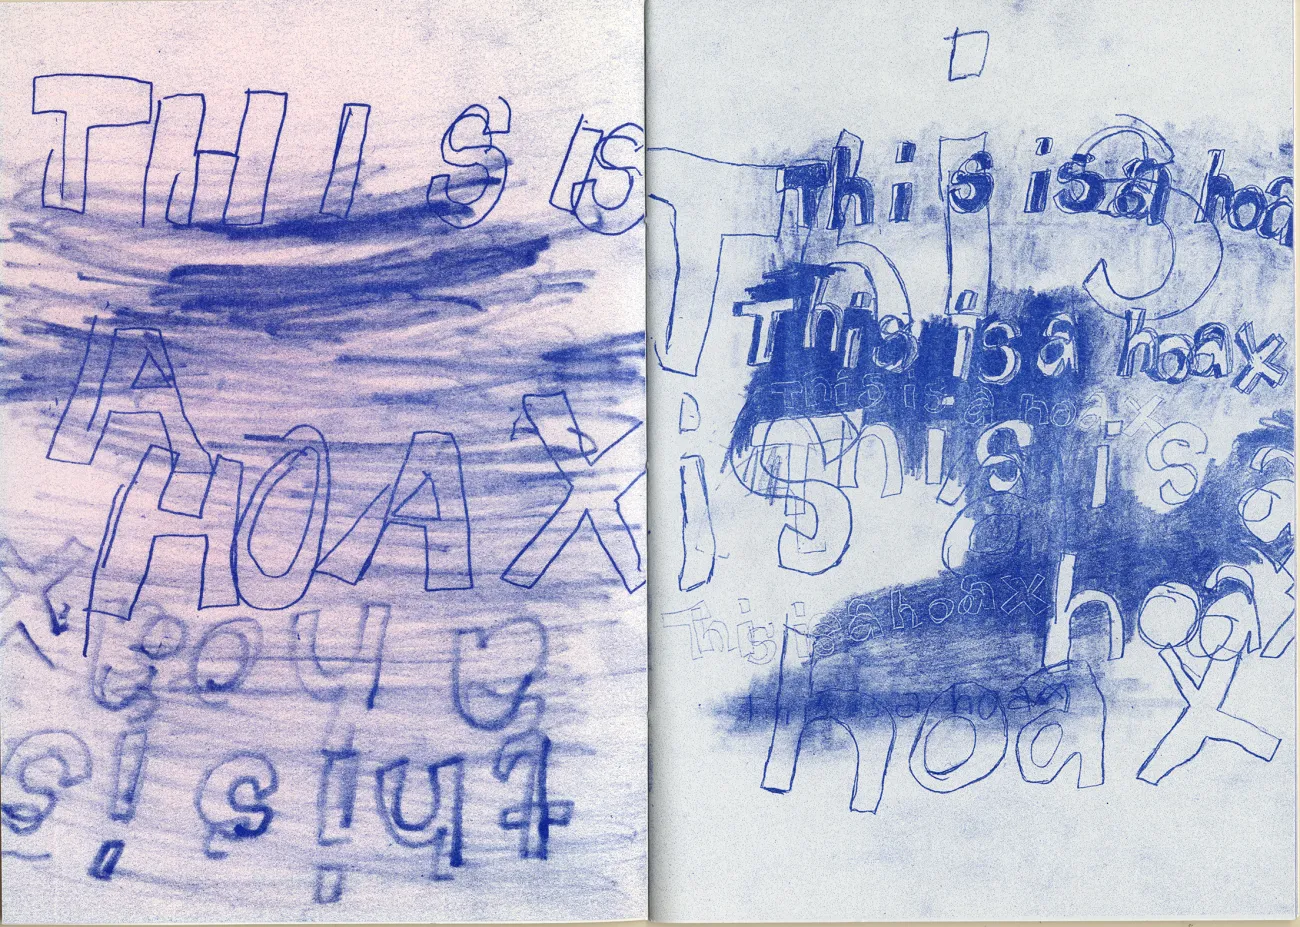 THIS IS
A
HOAX
a hoax
this is
This is a hoa
This
This is a hoax
This is a hoax
This is a
is a
hoax
This is a hoax
This is a hoax
hoax